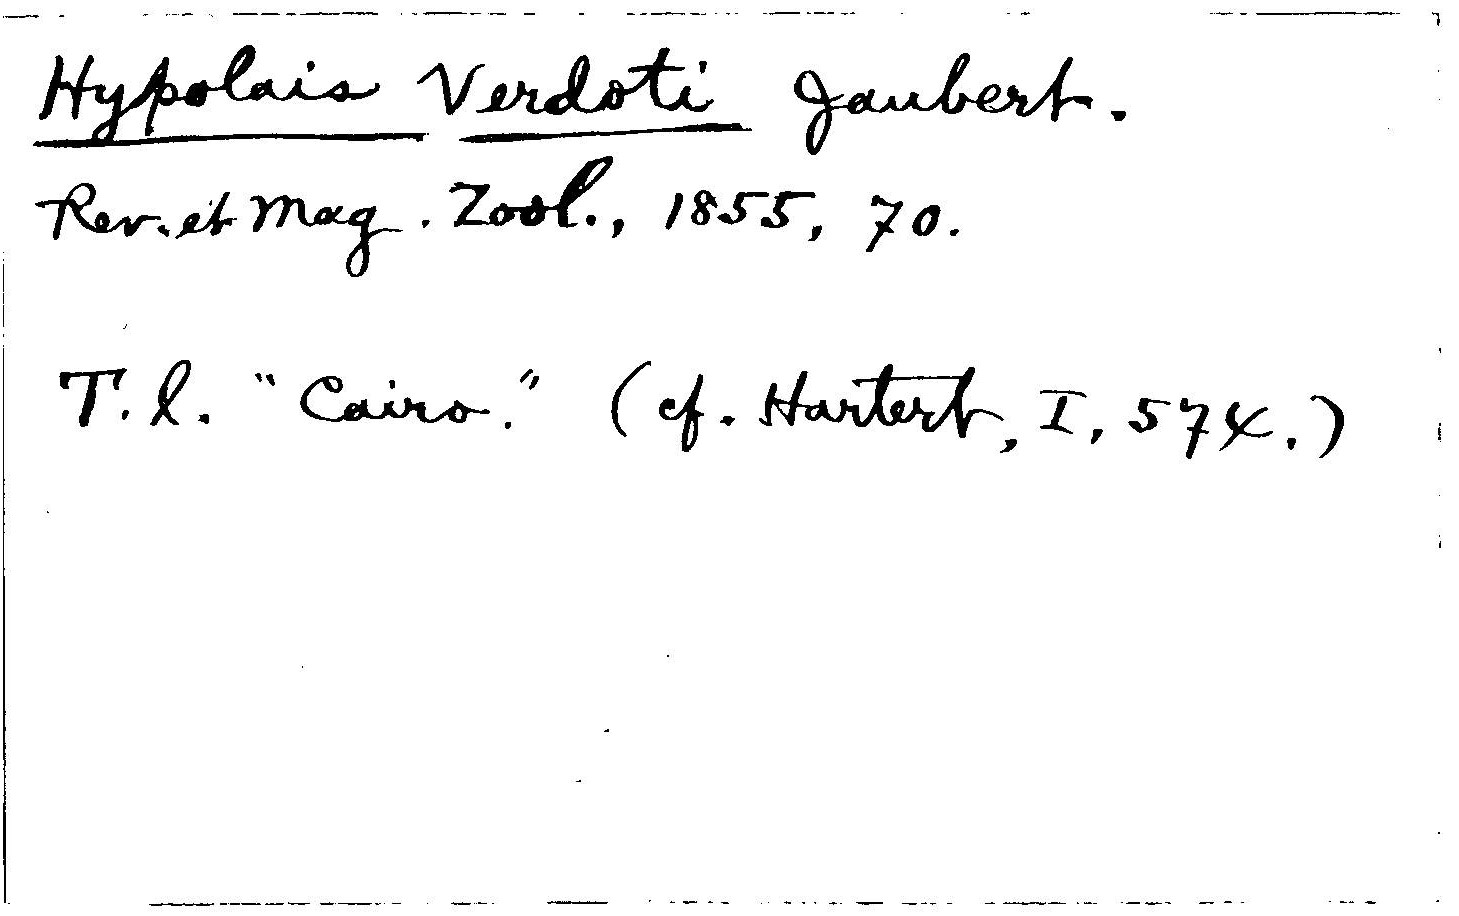 Hypolais Verdoti Jaubert.
Rev. et Mag. Zool., 1855, 70.
T. l. "Cairo." (cf. Hartert, I, 574.)